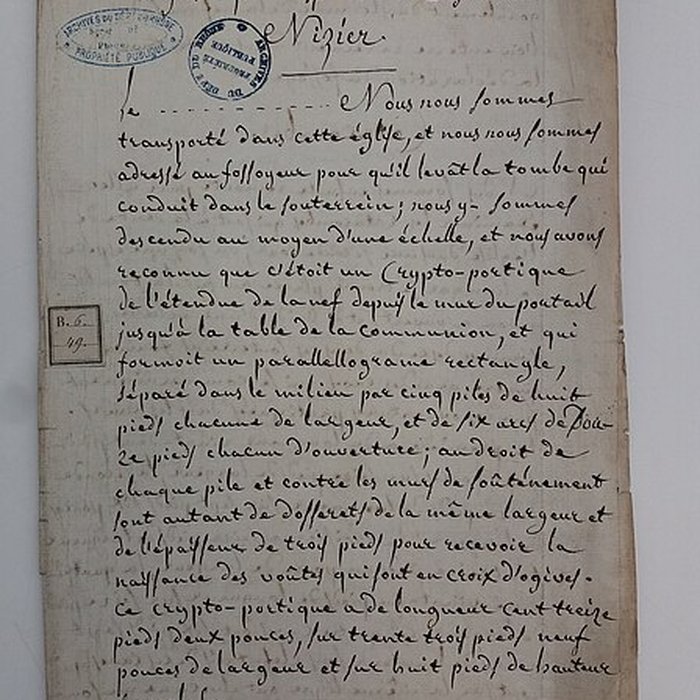 ARCHIVES DU DÉPT DU RHÔNE
PROPRIÉTÉ PUBLIQUE
ARCHIVES DU DÉPT DU RHÔNE
PROPRIÉTÉ PUBLIQUE
Nizier
le ---------------- Nous nous sommes
transporté dans cette église, et nous nous sommes
adressé au fossoyeur pour qu'il levât la tombe qui
conduit dans le souterrein; nous y- sommes
descendu au moyen d'une échelle, et nous avons
reconnu que c'étoit un Crypto-portique
de l'étendue de la nef depuis le mur du portail
jusqu'à la table de la communion, et qui
B. 6.
49.
formoit un parallellograme rectangle,
séparé dans le milieu par cinq piles de huit
pieds chacune de largeur, et de six arcs de Dou-
ze pieds chacun d'ouverture; au droit de
chaque pile et contre les murs de soûténement
sont autant de dosserets de la même largeur et
de l'épaisseur de trois pieds pour recevoir la
naissance des voûtes qui sont en croix d'ogives.
Ce crypto-portique a de longueur cent treize
pieds deux pouces, sur trente trois pieds neuf
pouces de largeur et sur huit pieds de hauteur